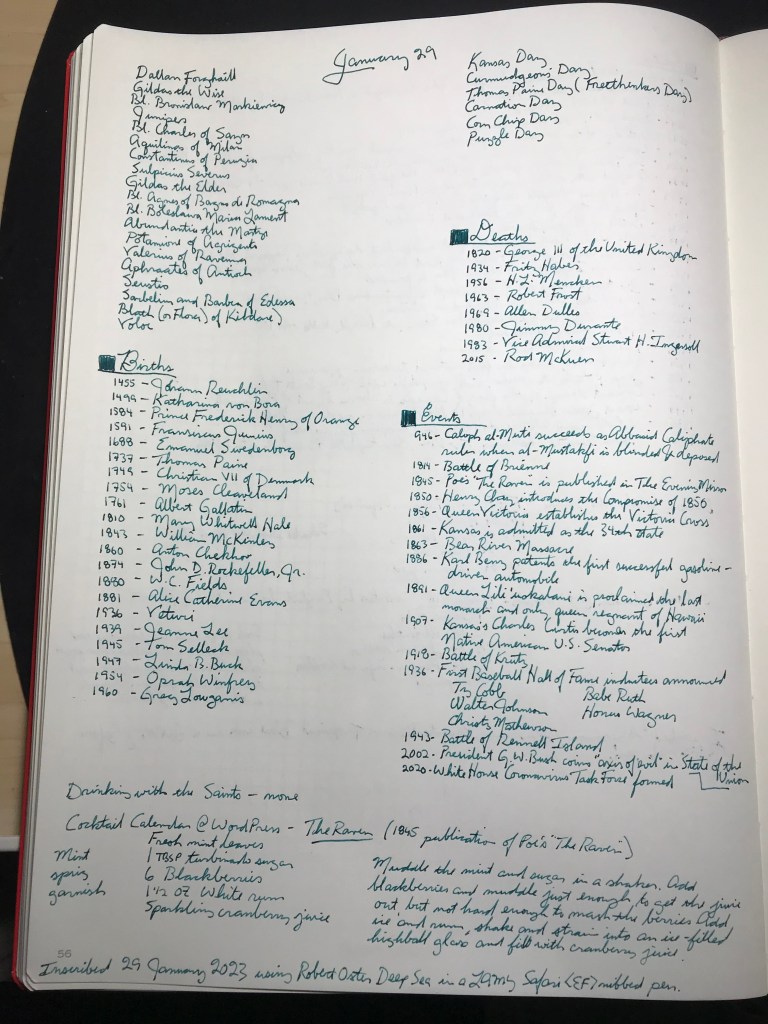 January 29
Dallan Forghaill
Gildas the Wise
Bl. Bronislaw Markiewicz
Junipers
Bl. Charles of Sayn
Aquilinus of Milan
Constantinus of Perugia
Sulpicius Severus
Gildas the Elder
Bl. Agnes of Bagno de Romagna
Bl. Boleslawa Maria Lament
Abundantia the Martyr
Potamione of Agrigento
Valerius of Ravenna
Aphraates of Antioch
Serustis
Sarbelius and Barbea of Edessa
Blath (or Flora) of Kildare)
Voloc
Kansas Day
Curmudgeons Day
Thomas Paine Day (Freethinkers Day)
Carnation Day
Corn Chip Day
Puzzle Day
Deaths
1820 - George III of the United Kingdom
1934 - Fritz Haber
1956 - H.L. Mencken
1963 - Robert Frost
1969 - Allen Dulles
1980 - Jimmy Durante
1983 - Vice Admiral Stuart H. Ingersoll
2015 - Rod McKuen
Births
1455 - Johann Reuchlin
1499 - Katharina von Bora
1584 - Prince Frederick Henry of Orange
1591 - Franciscus Junius
1688 - Emanuel Swedenborg
1737 - Thomas Paine
1749 - Christian VII of Denmark
1754 - Moses Cleaveland
1761 - Albert Gallatin
1810 - Mary Whitwell Hale
1843 - William McKinley
1860 - Anton Chekhov
1874 - John D. Rockefeller, Jr.
1880 - W.C. Fields
1881 - Alice Catherine Evans
1936 - Veturi
1939 - Jeanne Lee
1945 - Tom Selleck
1947 - Linda B. Buck
1954 - Oprah Winfrey
1960 - Greg Louganis
Events
946 - Caliph al-Muti succeeds as Abbasid Caliphate
ruler when al-Mustakfi is blinded & deposed
1814 - Battle of Brienne
1845 - Poe's "The Raven" is published in The Evening Mirror
1850 - Henry Clay introduces the Compromise of 1850
1856 - Queen Victoria establishes the Victoria Cross
1861 - Kansas is admitted as the 34th state
1863 - Bear River Massacre
1886 - Karl Benz patents the first successful gasoline-
driven automobile
1891 - Queen Lili'uokalani is proclaimed the last
monarch and only queen regnant of Hawaii
1907 - Kansas's Charles Curtis becomes the first
Native American U.S. Senator
1918 - Battle of Kruty
1936 - First Baseball Hall of Fame inductees announced
Ty Cobb Babe Ruth
Walter Johnson Honus Wagner
Christy Mathewson
1943 - Battle of Rennell Island
2002 - President G.W. Bush coins "axis of evil" in State of the
Union
2020 - White House Coronavirus Task Force formed
Drinking with the Saints - none
Cocktail Calendar @ WordPress - The Raven (1845 publication of Poe's "The Raven")
Fresh mint leaves
1 TBSP turbinado sugar
6 Blackberries
1 1/2 oz White rum
Sparkling cranberry juice
Mint
sprig
garnish
Muddle the mint and sugar in a shaker. Add
blackberries and muddle just enough to get the juice
out, but not hard enough to mash the berries. Add
ice and rum, shake and strain into an ice-filled
highball glass and fill with cranberry juice.
56
Inscribed 29 January 2023 using Robert Oster Deep Sea in a Lamy Safari <EF> nibbed pen.